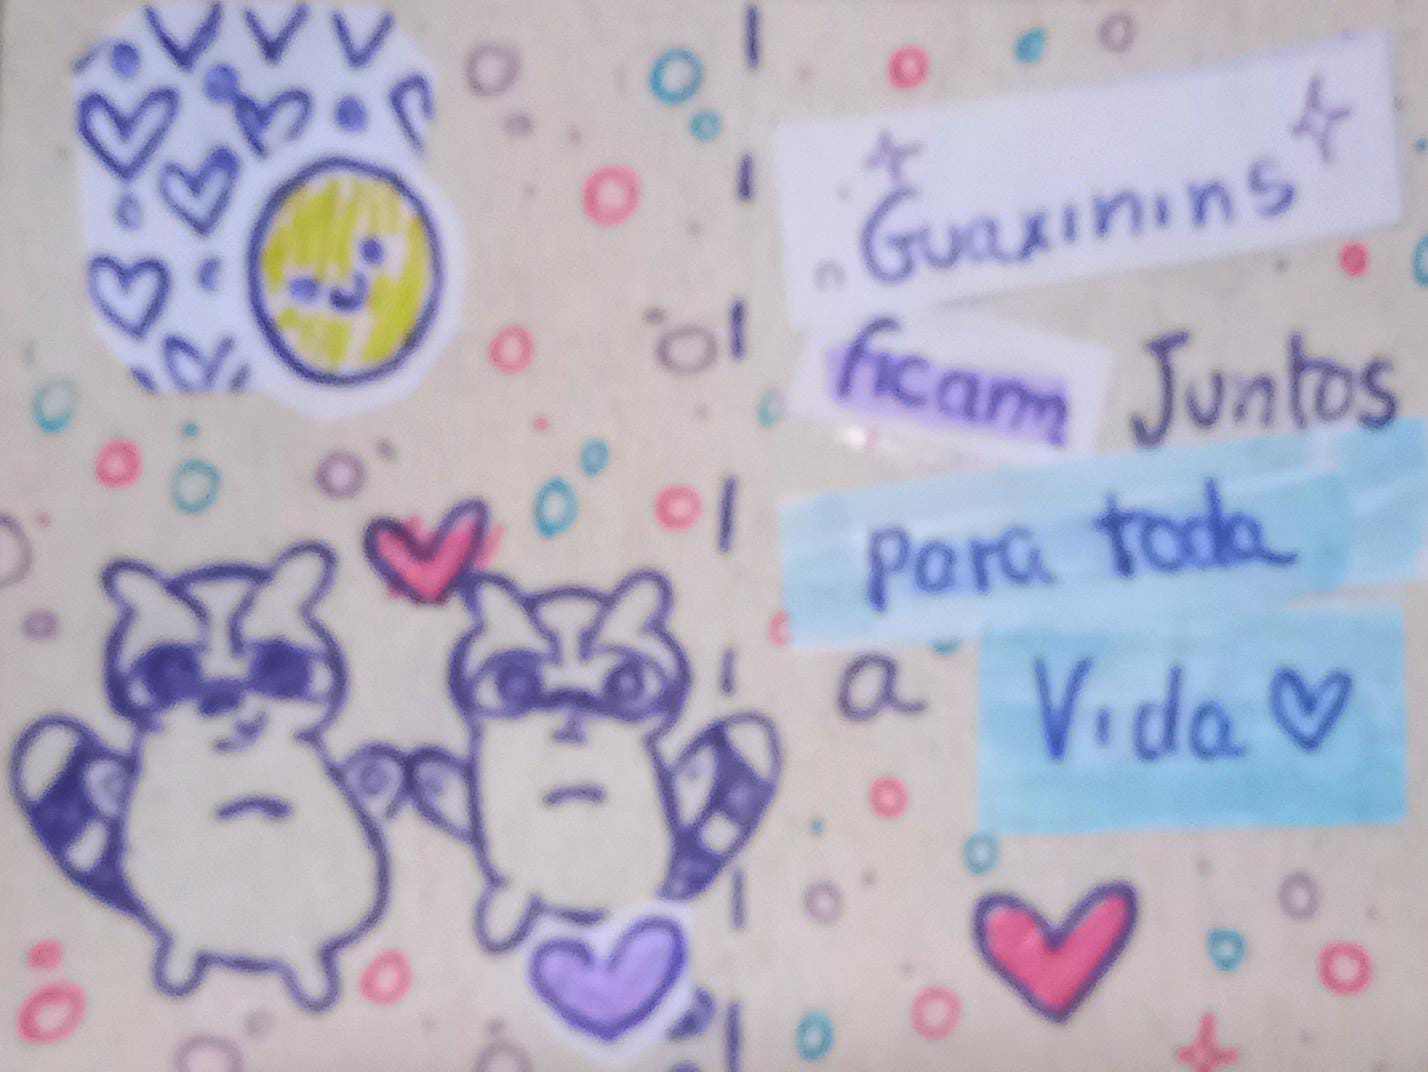 Guaxinins
ficam Juntos
para toda
a Vida